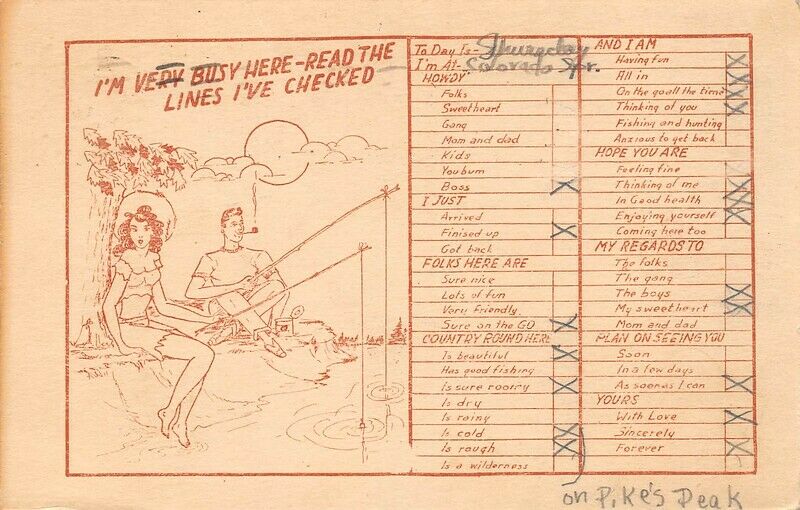 I'M VERY BUSY HERE-READ THE
LINES I'VE CHECKED
To Day Is- Thursday
I'm At- Colorado Spr.
HOWDY
Folks
Sweetheart
Gang
Mom and dad
Kids
You bum
Boss X
I JUST
Arrived
Finised up X
Got back
FOLKS HERE ARE
Sure nice
Lots of fun
Very Friendly
Sure on the GO X
COUNTRY ROUND HERE
Is beautiful X
Has good fishing
Is sure roomy X
Is dry
Is rainy
Is cold X
Is rough X
Is a wilderness
AND I AM
Having fun X
All in X
On the go all the time X
Thinking of you X
Fishing and hunting
Anxious to get back
HOPE YOU ARE
Feeling fine
Thinking of me X
In Good health X
Enjoying yourself X
Coming here too
MY REGARDS TO
The folks
The gang
The boys X
My sweetheart X
Mom and dad
PLAN ON SEEING YOU
Soon
In a few days
As soon as I can X
YOURS
With Love X
Sincerely
Forever X
on Pike's Peak